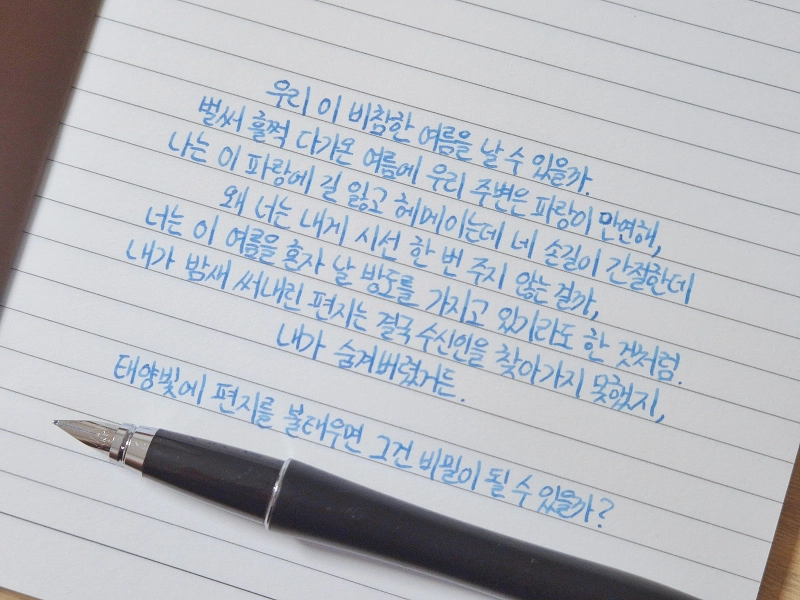 우리 이 비참한 여름을 날 수 있을까.
벌써 훌쩍 다가온 여름에 우리 주변은 파랑이 만연해,
나는 이 파랑에 길 잃고 헤메이는데 네 손길이 간절한데
왜 너는 내게 시선 한 번 주지 않는 걸까,
너는 이 여름을 혼자 날 방도를 가지고 있기라도 한 것처럼.
내가 밤새 써내린 편지는 결국 수신인을 찾아가지 못했지,
내가 숨겨버렸거든.
태양빛에 편지를 불태우면 그건 비밀이 될 수 있을까?